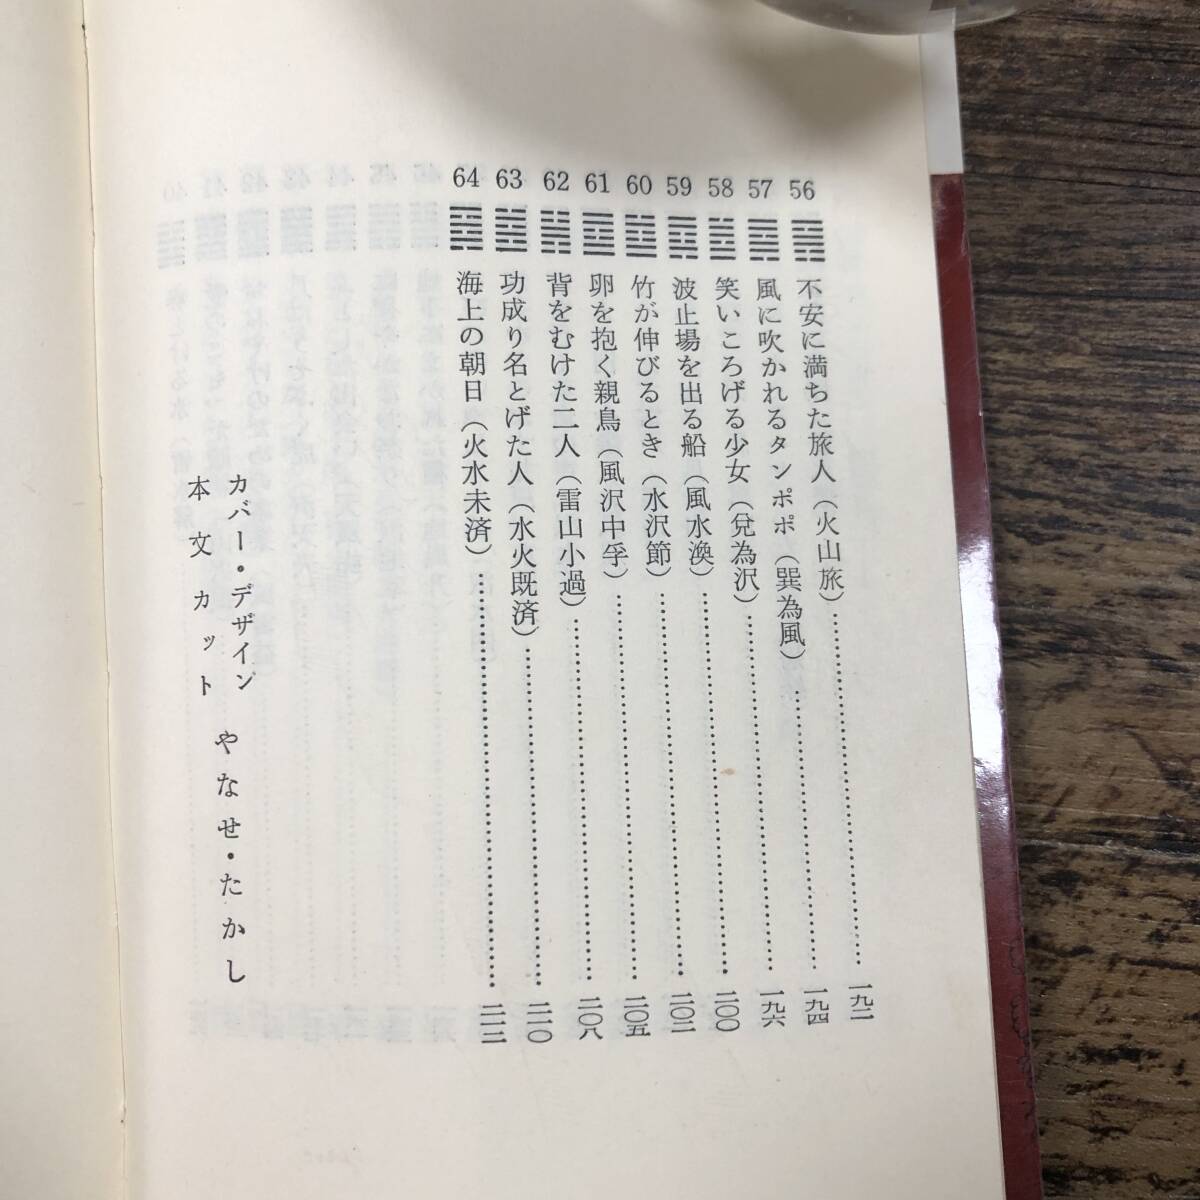 56 ䷷ 不安に満ちた旅人（火山旅）……………………一九二
57 ䷸ 風に吹かれるタンポポ（巽為風）……………………一九四
58 ䷹ 笑いころげる少女（兌為沢）……………………一九六
59 ䷺ 波止場を出る船（風水渙）……………………二〇〇
60 ䷻ 竹が伸びるとき（水沢節）……………………二〇二
61 ䷼ 卵を抱く親鳥（風沢中孚）……………………二〇五
62 ䷽ 背をむけた二人（雷山小過）……………………二〇八
63 ䷾ 功成り名とげた人（水火既済）……………………二一〇
64 ䷿ 海上の朝日（火水未済）……………………二一三
カバー・デザイン
本文カット
やなせ・たかし